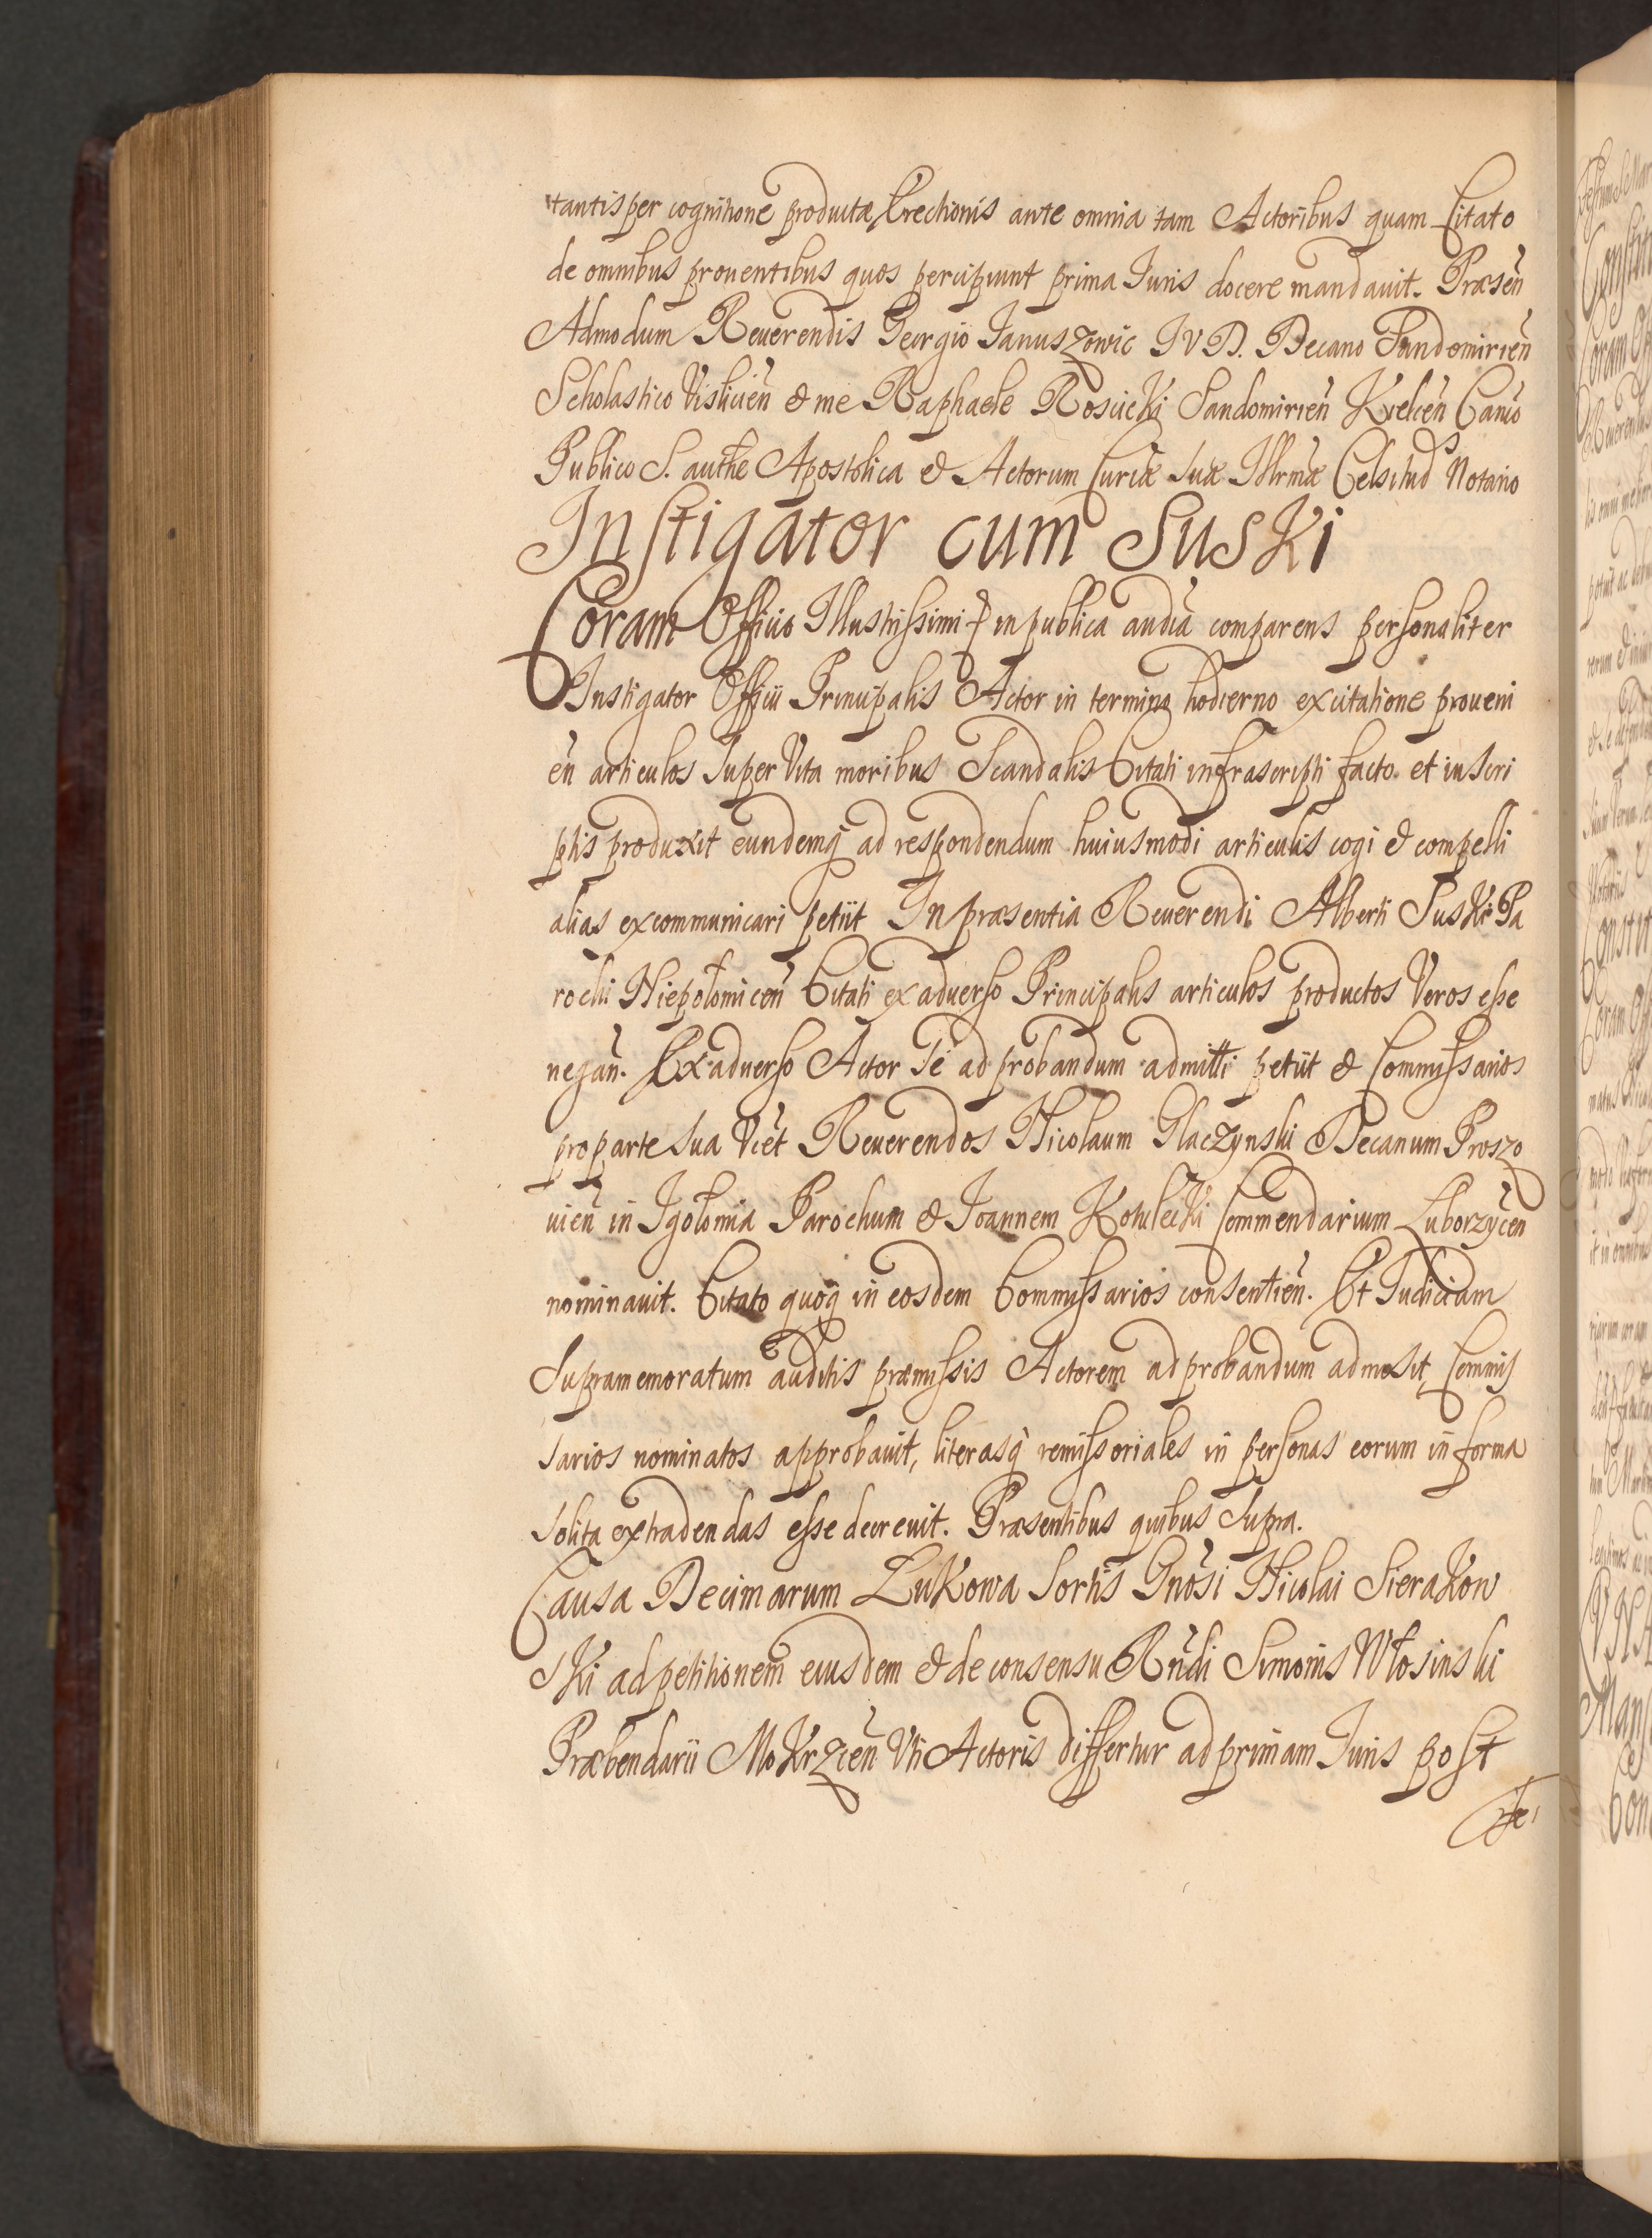 tantisper cognitione productæ Erectionis ante omnia tam Actoribus quam Citato
de omnibus prouentibus quos percipiunt prima Iuris docere mandauit. Præsen̄
Admodum Reuerendis Georgio Ianuszowic I V D. Decano Sandomirien̄
Scholastico Vislicien̄ & me Raphaele Rosiicki Sandomirien̄ Kielcen̄ Canco
Publico S. authē Apostolica & Actorum Curiæ suæ Illrmæ Celsitud Notario
Instigator cum Suski
Coram Officio Illustrissimi & in publica audia comparens personaliter
Instigator Officii Principalis Actor in termino hodierno ex citatione proueni
en̄ articulos super Vita moribus Scandalis Citati infrascripti facto et in scri
ptis produxit eundemq̨ ad respondendum huiusmodi articulis cogi & compelli
alias excommunicari petiit In præsentia Reuerendi Alberti Suski Pa
rochi Niepołomicen̄ Citati ex aduerso Principalis articulos productos Veros esse
negan̄. Ex aduerso Actor se ad probandum admitti petiit & Commissarios
pro parte sua Vict Reuerendos Nicolaum Glaczynski Decanum Proszo
uien̄ in Igołomia Parochum & Ioannem Kotulecki Commendarium Luborzycen̄
nominauit. Citato quoq̨ in eosdem Commissarios consentien̄. Et Iudicium
Supramemoratum auditis præmissis Actorem ad probandum admisit, Commis
sarios nominatos approbauit, literasq̨ remissoriales in personas eorum in forma
solita extradendas esse decreuit. Præsentibus quibus supra.
Causa Decimarum Łukowa Sortis Gnosi Nicolai Sierakow
ski ad petitionem eiusdem & de consensu Rndi Simonis Włosinski
Præbendarii Mokrzcen̄ Vti Actoris differtur ad primam Iuris post